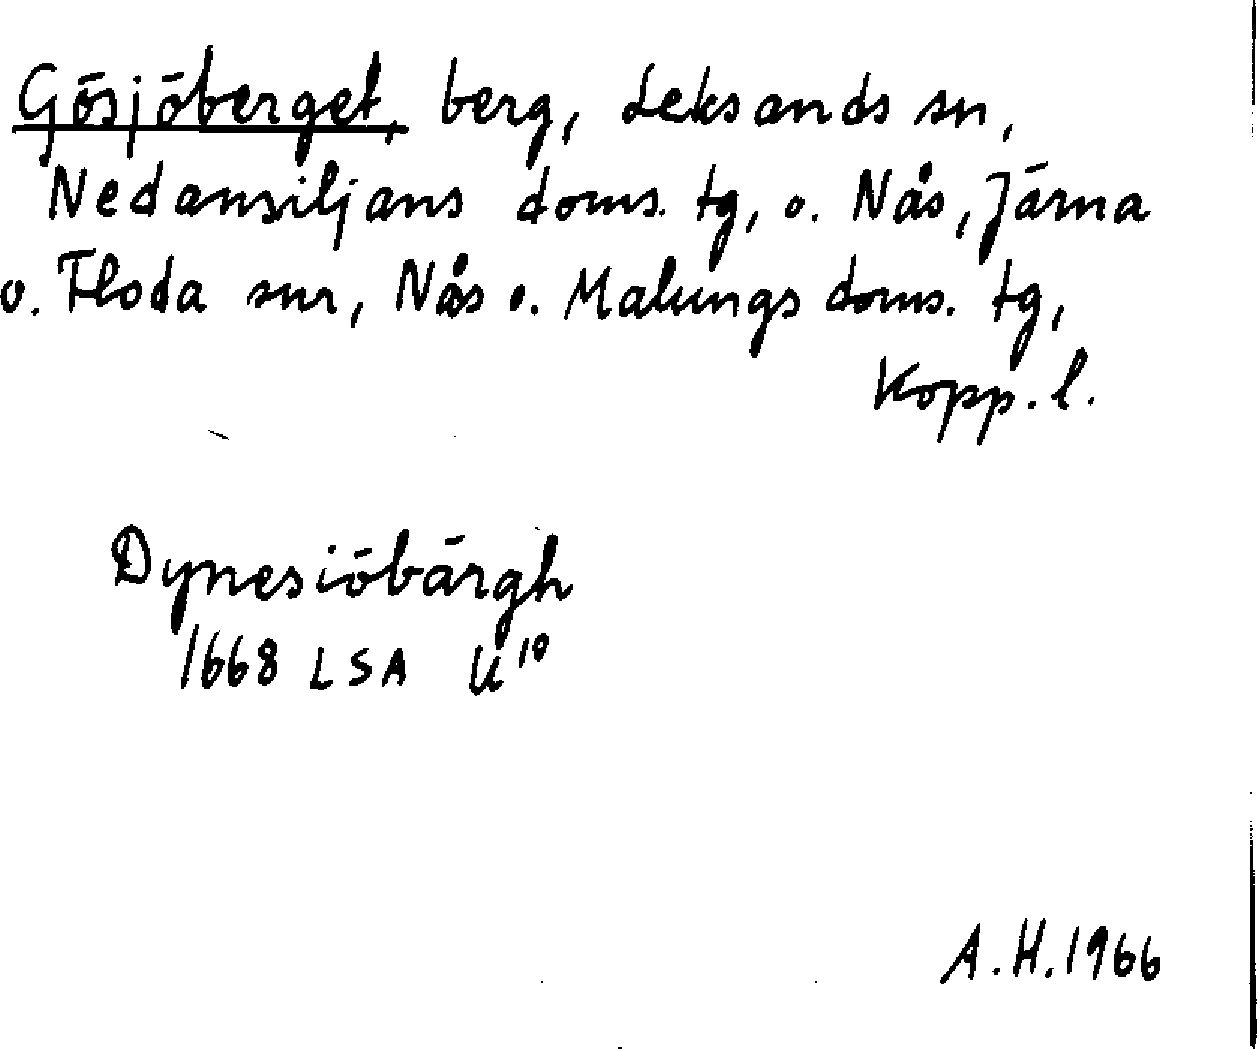 Gösjöberget, berg, Leksands sn,
Nedansiljans doms. tg, o. Nås, Järna
o. Floda snr, Nås o. Malungs doms. tg,
Kopp. l.
Dynesiöbärgh
1668 LSA U 10
A.H. 1966